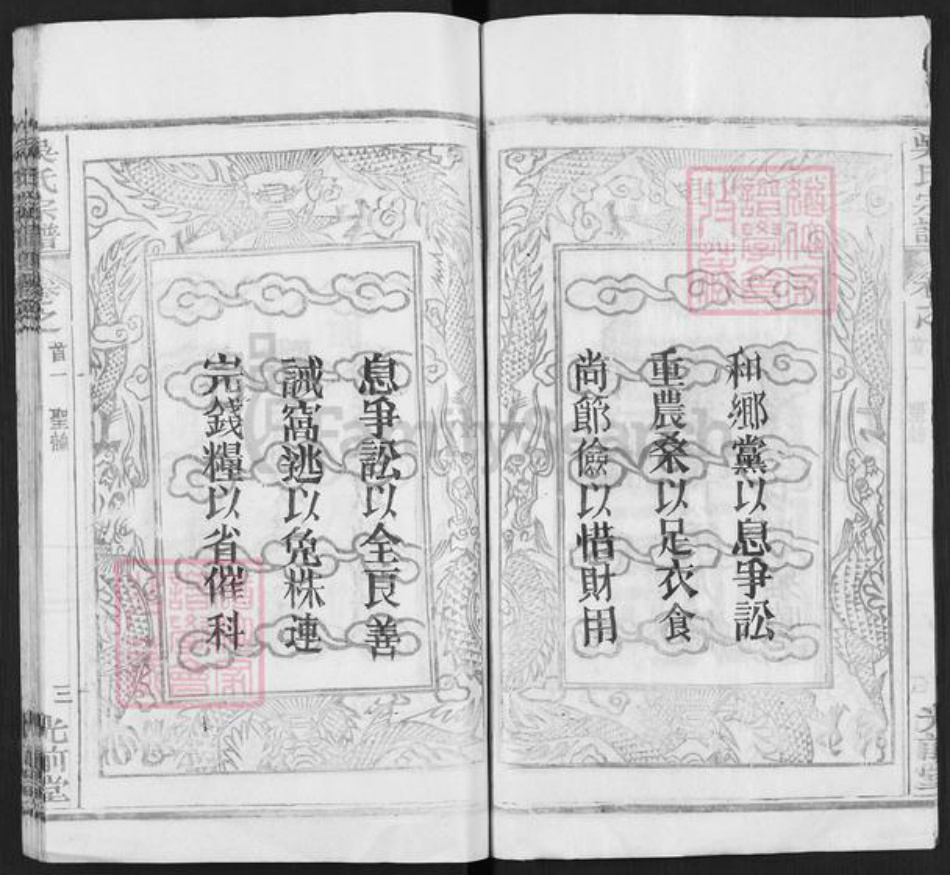 吳氏宗譜
和鄉黨以息爭訟
重農桑以足衣食
尚節儉以惜財用
息爭訟以全良善
誡窩逃以免株連
完錢糧以省催科
吳氏宗譜
卷之
首一
聖諭
三
光前堂